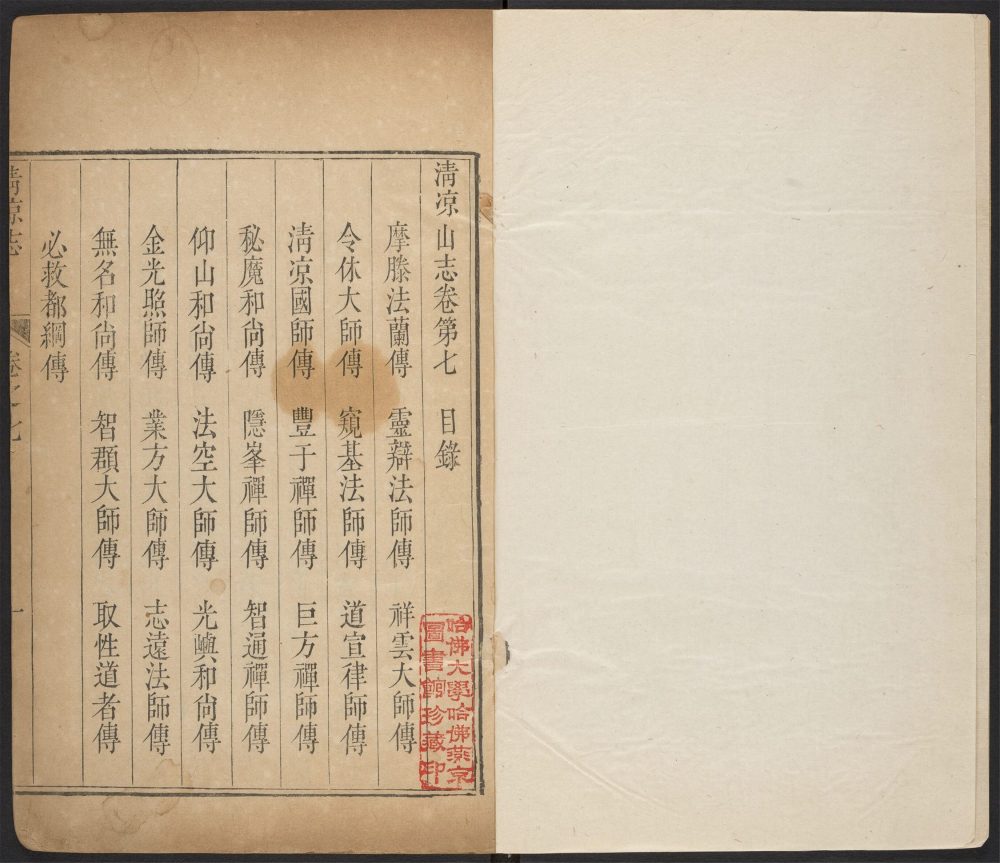 淸凉山志卷第七　目錄
摩滕法蘭傳　靈辯法師傳　祥雲大師傳
令休大師傳　窺基法師傳　道宣律師傳
淸凉國師傳　豐于禪師傳　巨方禪師傳
秘魔和尙傳　隱峯禪師傳　智通禪師傳
仰山和尙傳　法空大師傳　光嶼和尙傳
金光照師傳　業方大師傳　志遠法師傳
無名和尙傳　智頵大師傳　取性道者傳
必救都綱傳
淸凉志　卷之七　一
哈佛大學哈佛燕京
圖書館珍藏印